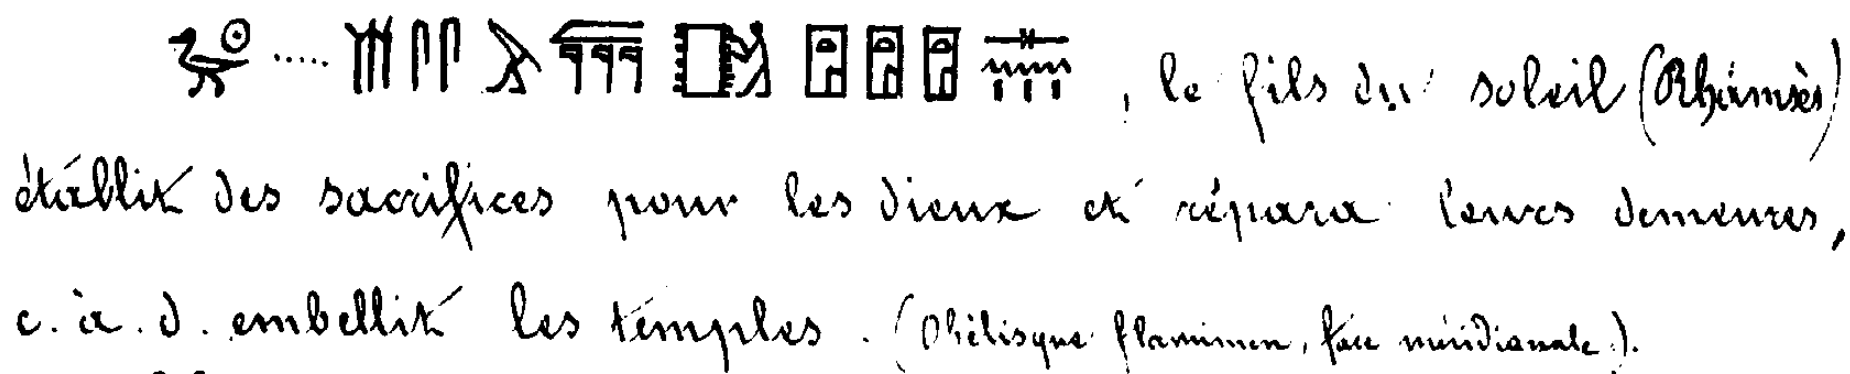 , le fils du soleil (Rhamsès)
établit des sacrifices pour les dieux et répara leurs demeures,
c. à. d. embellit les temples. (Obélisque flaminien, face méridionale).